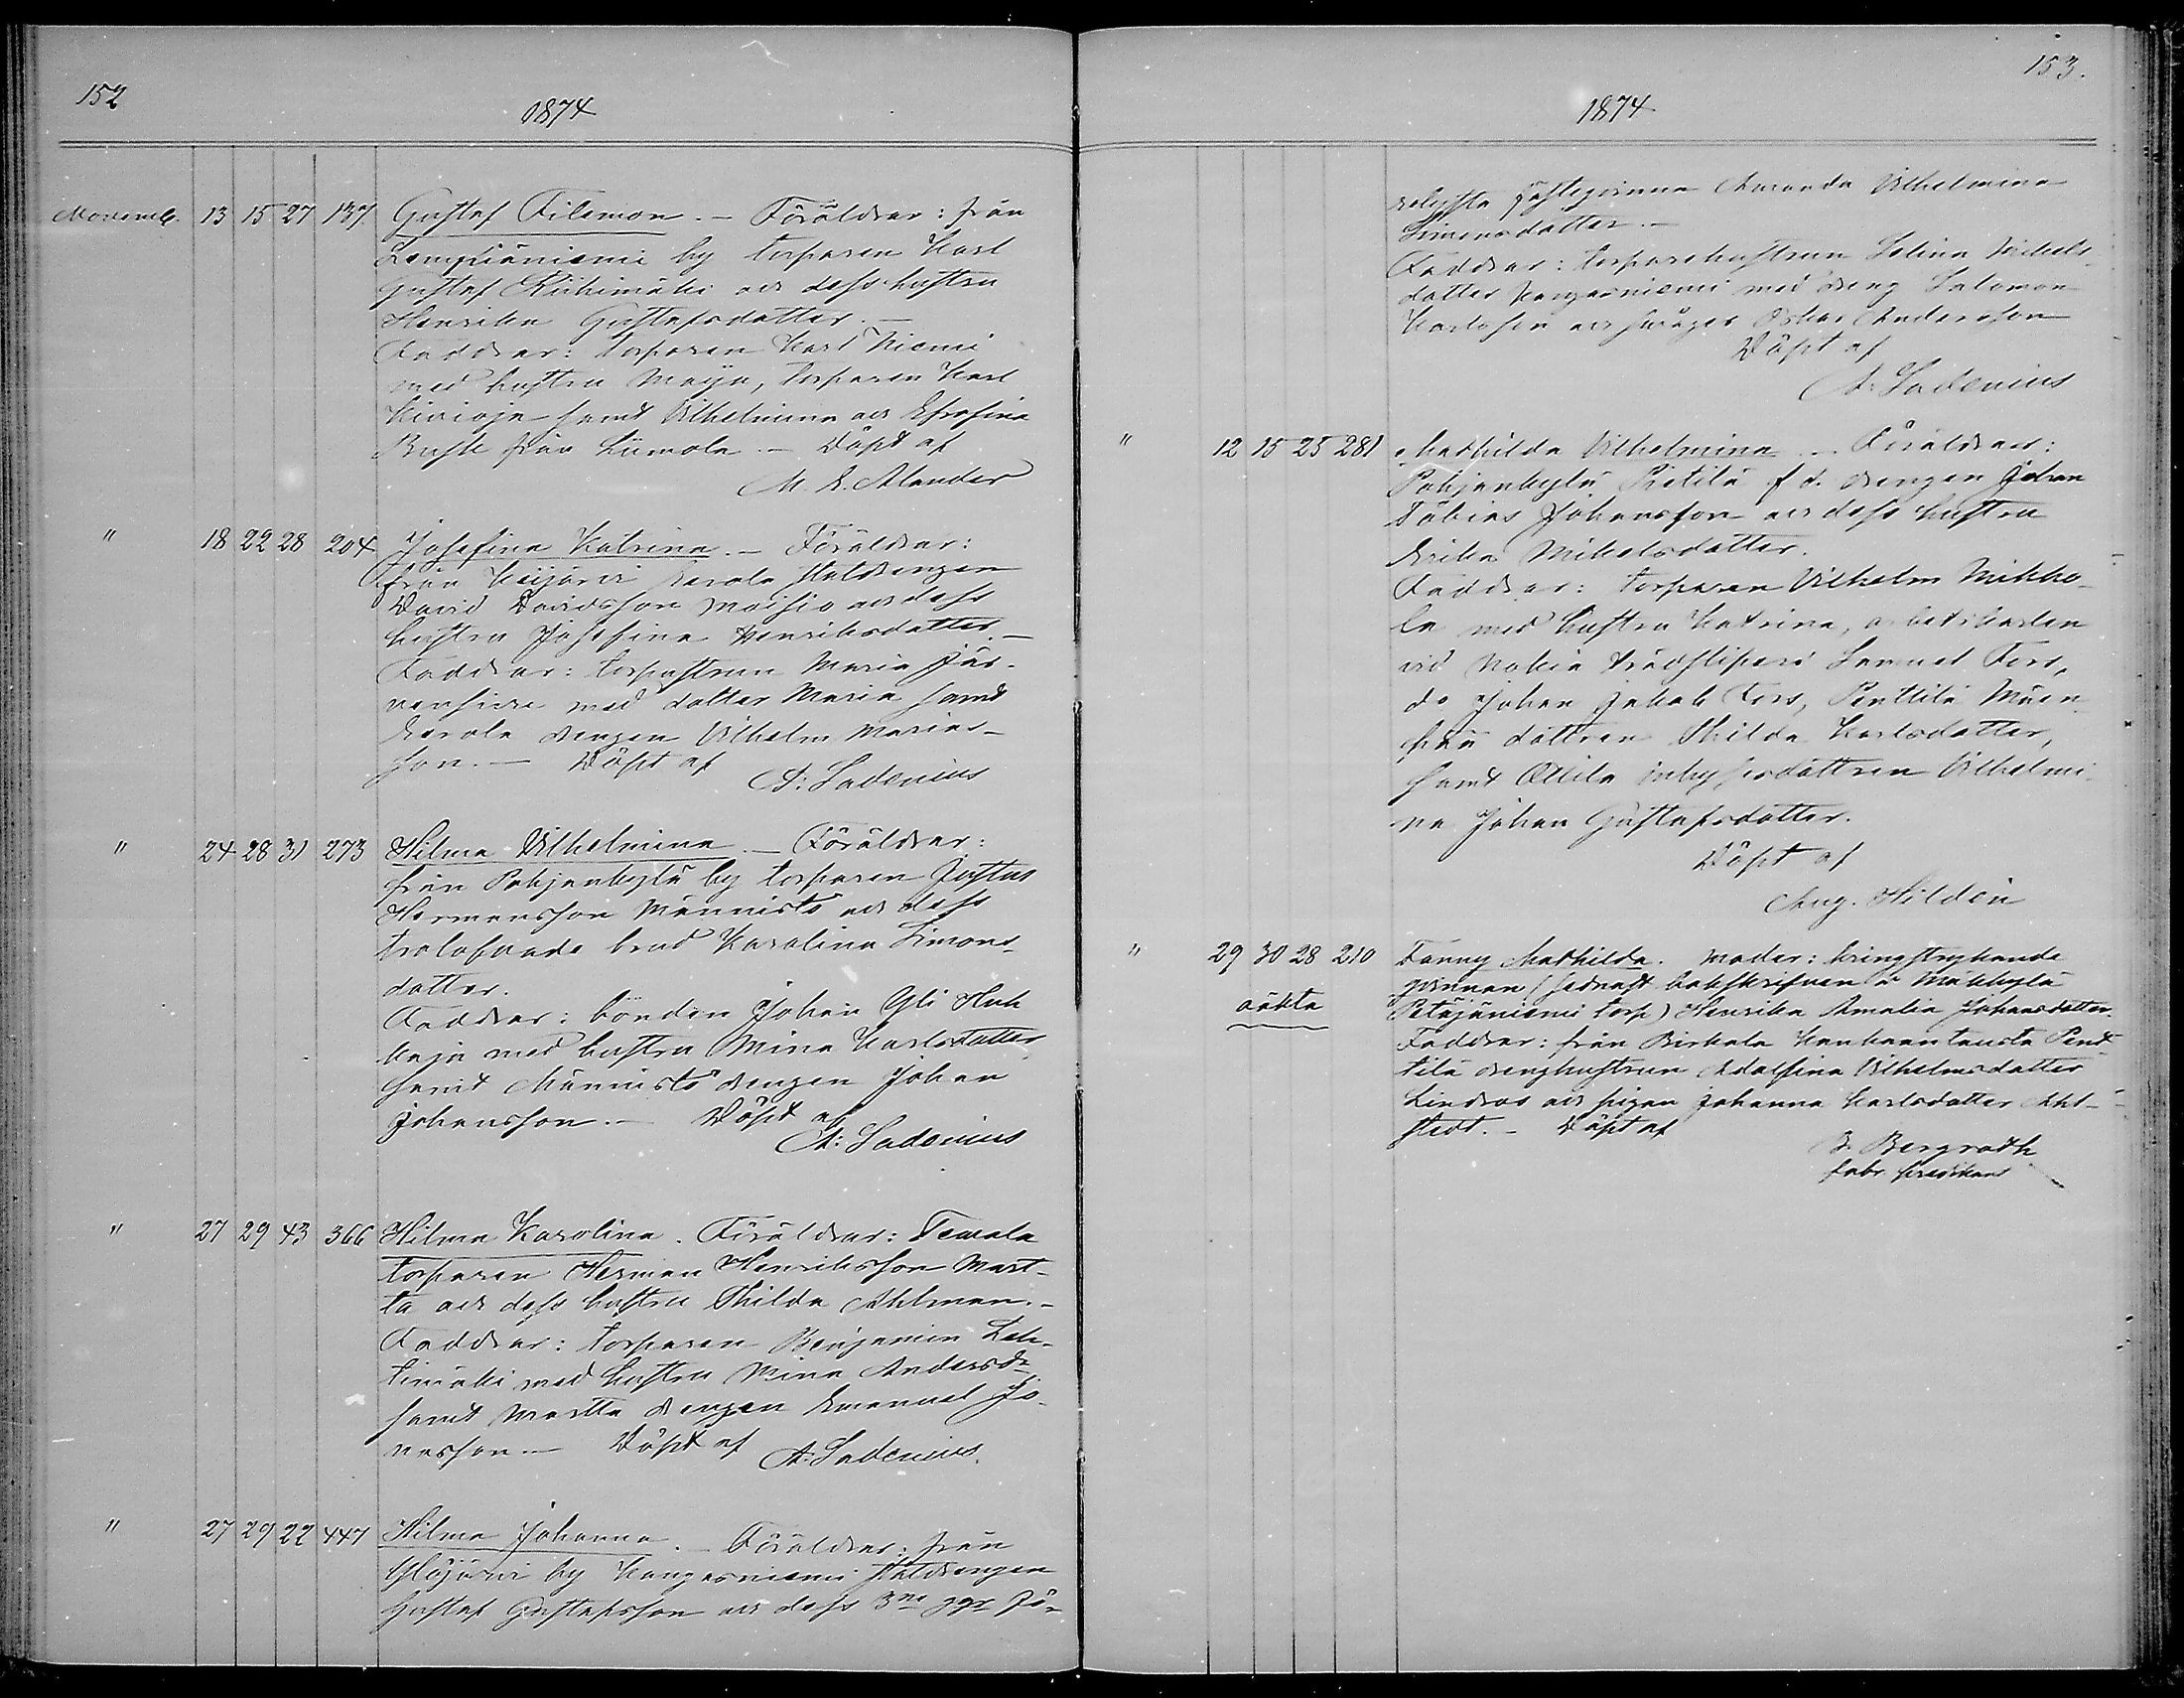 152
1874
Novemb. 13 15 27 137 Gustaf Filemon. – Föräldrar: från
Lempiäniemi by torparen Karl
Gustaf Riihimäki och dess hustru
Henrika Gustafsdotter. –
Faddrar: torparen Karl Niemi
med hustru Maija, torparen Karl
Kivioja samt Vilhelmina och Efrosina
från Liimola. – Döpt af
M. E. Alander
" 18 22 28 204 Josefina Katrina. – Föräldrar:
från Keijärvi Eerola staldrengen
David Davidsson Moisio och dess
hustru Josefina Henriksdotter. –
Faddrar: torphustrun Maria Jär-
vensivu med dotter Maria samt
Eerola drengen Vilhelm Marias-
son. – Döpt af
A: Ladenius
" 24 28 31 273 Hilma Vilhelmina. – Föräldrar:
från Pohjankylä by torparen Justus
Hermansson Männistö och dess
trolofvade brud Karolina Simons-
dotter.
Faddrar: bonden Johan Yli Huh
kaja med hustru Mina Karlsdotter
samt Männistö drengen Johan
Johansson. – Döpt af
A: Ladenius
" 27 29 43 366 Hilma Karolina. Föräldrar:
torparen Herman Henriksson Mart-
ta och dess hustru Thilda Ahlman. –
Faddrar: torparen Benjamin Leh-
timäki med hustru Mina Andersdr
samt Martta drengen Emanuel Jo-
nasson. – Döpt af
A. Ladenius.
" 27 29 22 447 Hilma Johanna. – Föräldrar: från
Ylöjärvi by Kangasniemi staldrengen
Gustaf Gustafsson och dess 3ne ggr på-
153.
1874
relysta fästeqvinna Amanda Vilhelmina
Simonsdotter. –
Faddrar: torparehustrun Selina Mikels-
dotter Kangasniemi med dreng Salomon
Karlsson och svåger Oskar Andersson
Döpt af
A: Ladenius
" 12 15 25 281 Mathilda Vilhelmina. – Föräldrar:
Pohjankylä Pietilä f d. drengen Johan
Tobias Johansson och dess hustru
Erika Mikelsdotter.
Faddrar: torparen Vilhelm Mikko-
la med hustru Katrina, arbetskarlen
vid Nokia träsliperi Samuel Fors,
do Johan Jakob Fors, Penttilä
dottren Thilda Karlsdotter,
samt Ollila inhysesdottren Vilhelmi-
na Johan Gustafsdotter.
Döpt af
Aug. Hildén
" 29 30 28 210 Fanny Mathilda. Moder: kringstrykande
oäkta
qvinnan (sednast bokskrifven å Mäkkylä
Petäjäniemi torp) Henrika Amalia Johansdotter.
Faddrar: från Birkala Kankaantausta Pent
tilä drenghustrun Adolfina Vilhelmsdotter
Lindroos och pigan Johanna Karlsdotter Ahl-
stedt. – Döpt af
B. Bergroth
fabr. predikant